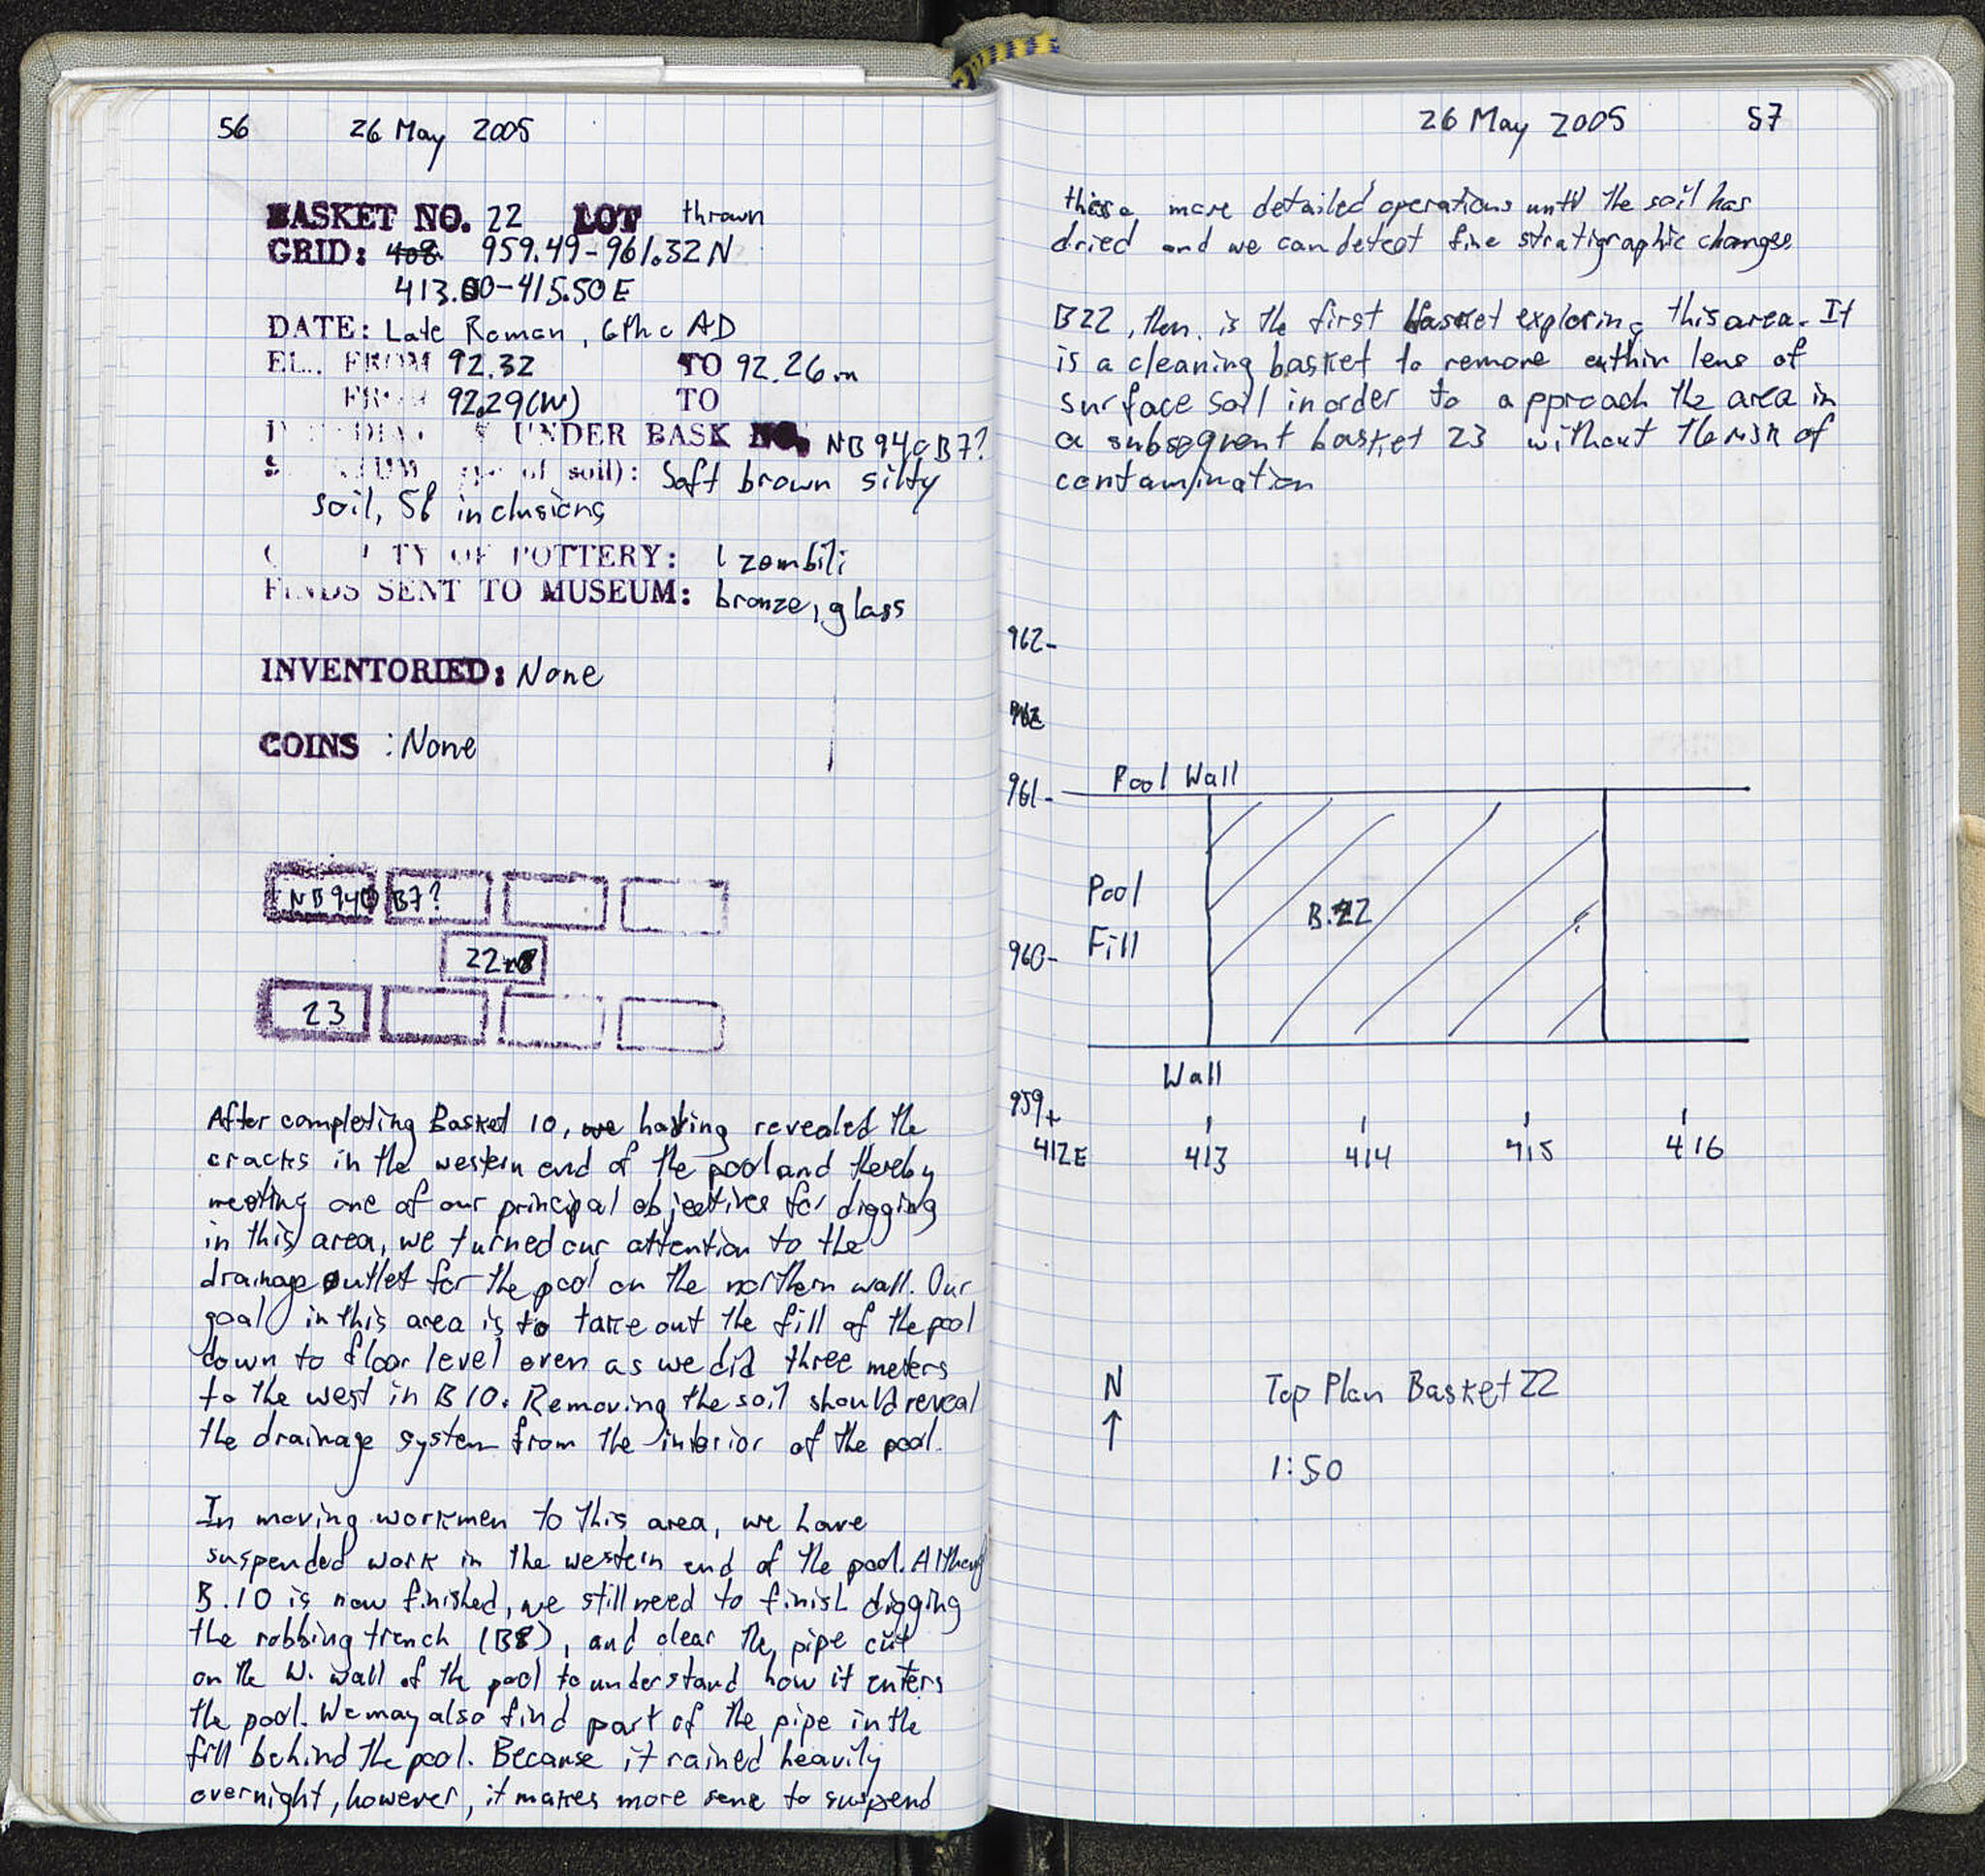 56 26 May 2005
BASKET NO. 22 LOT thrown
GRID: 408 959.49-961.32 N
413.00-415.50 E
DATE: Late Roman, 6th c AD
EL. FROM 92.32 TO 92.26 m
FROM 92.29(W) TO
UNDER BASK NO. NB 940 B7?
of soil): Soft brown silty
soil, 5% inclusions
TY OF POTTERY: 1 zembili
FINDS SENT TO MUSEUM: bronze, glass
INVENTORIED: None
COINS : None
NB 940 B7?
22
23
After completing Basket 10, we having revealed the
cracks in the western end of the pool and thereby
meeting one of our principal objectives for digging
in this area, we turned our attention to the
drainage outlet for the pool on the northern wall. Our
goal in this area is to take out the fill of the pool
down to floor level even as we did three meters
to the west in B10. Removing the soil should reveal
the drainage system from the interior of the pool.
In moving workmen to this area, we have
suspended work in the western end of the pool. Although
B.10 is now finished, we still need to finish digging
the robbing trench (B8), and clear the pipe cut
on the W. wall of the pool to understand how it enters
the pool. We may also find part of the pipe in the
fill behind the pool. Because it rained heavily
overnight, however, it makes more sense to suspend
26 May 2005 57
these more detailed operations until the soil has
dried and we can detect fine stratigraphic changes.
B22, then, is the first basket exploring this area. It
is a cleaning basket to remove a thin lens of
surface soil in order to approach the area in
a subsequent basket 23 without the risk of
contamination
962-
961- Pool Wall
Pool
B.22
960- Fill
Wall
959+
412E 413 414 415 416
N Top Plan Basket 22
1:50